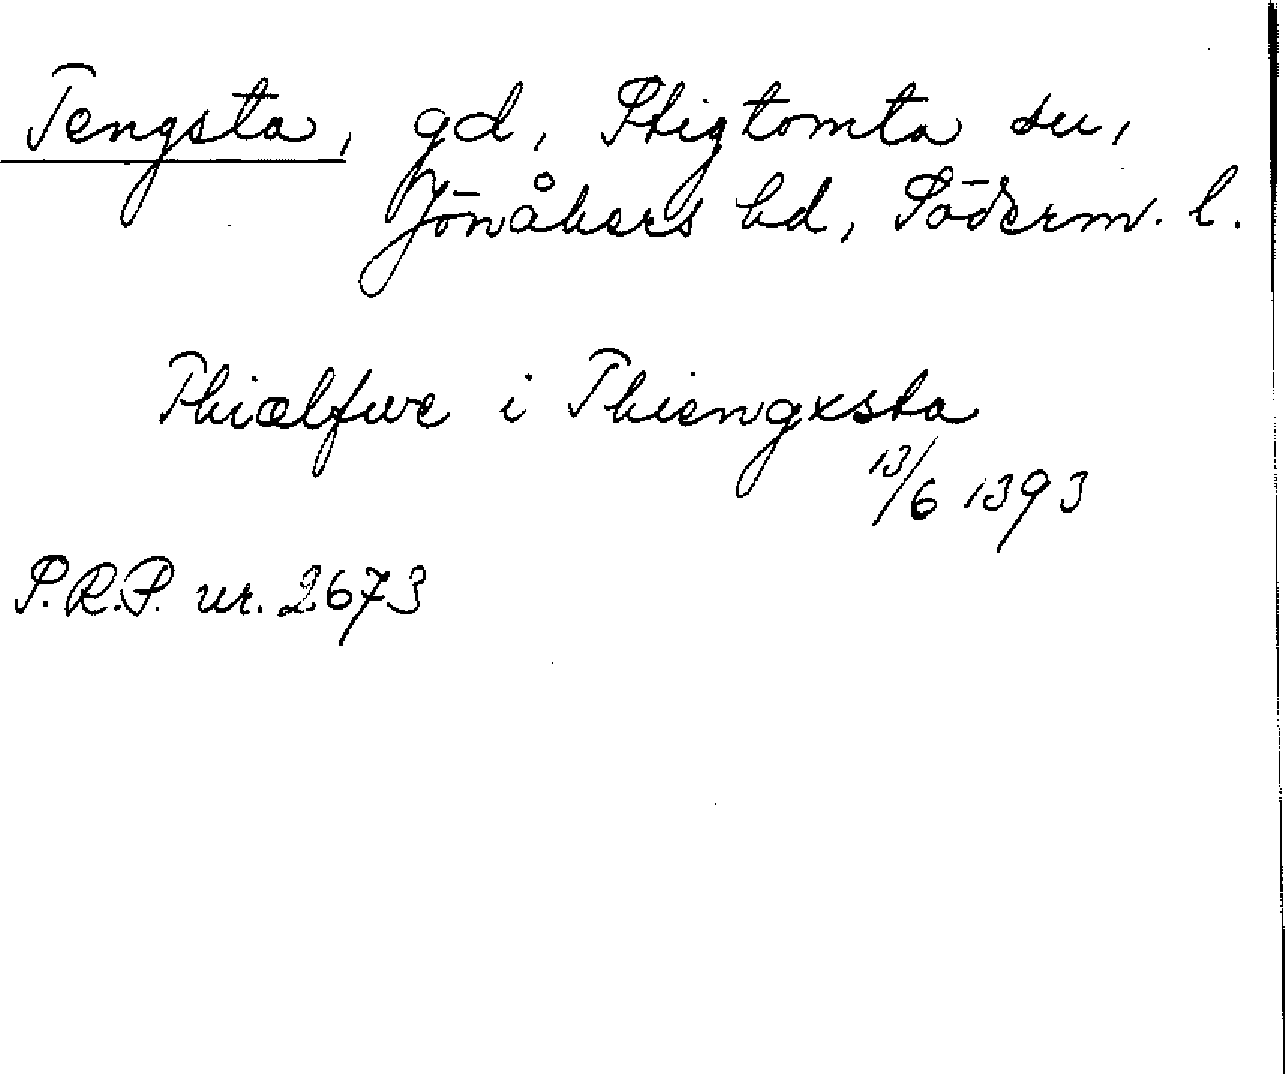 Tengsta, gd, Stigtomta sn,
Jönåkers hd, Söderm. l.
Thiælfwe i Thiengxsta
13/6 1393
S.R.P. nr. 2673